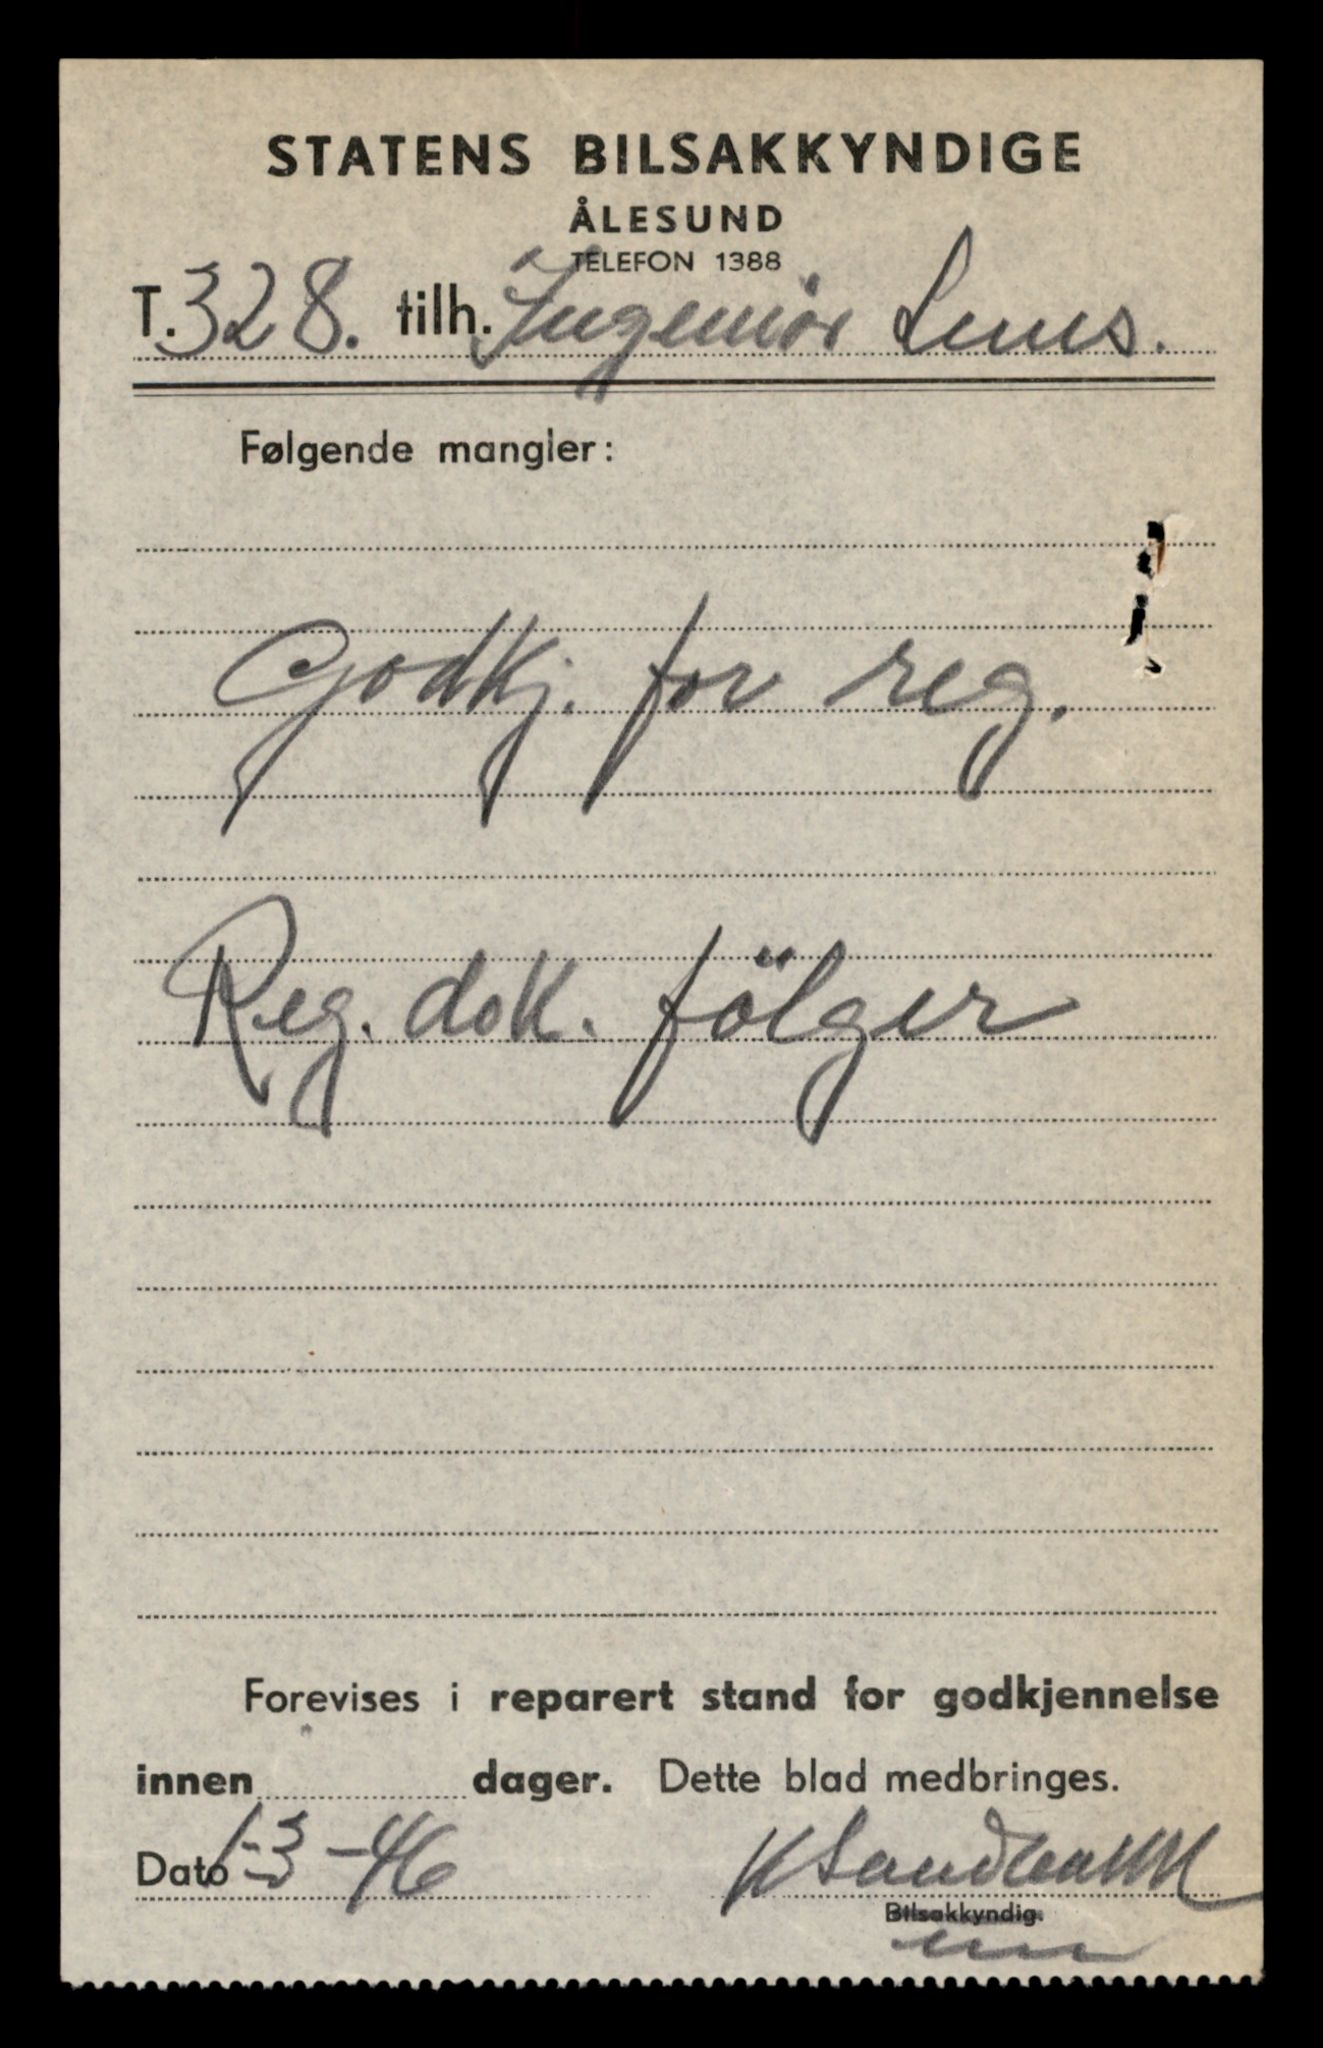 STATENS BILSAKKYNDIGE
ÅLESUND
TELEFON 1388
T. 328. tilh. Ingeniør
Følgende mangler:
Godkj. for reg.
Reg. dok. følger
Forevises i reparert stand for godkjennelse
innen dager. Dette blad medbringes.
Dato 1-3-46
Bilsakkyndig.